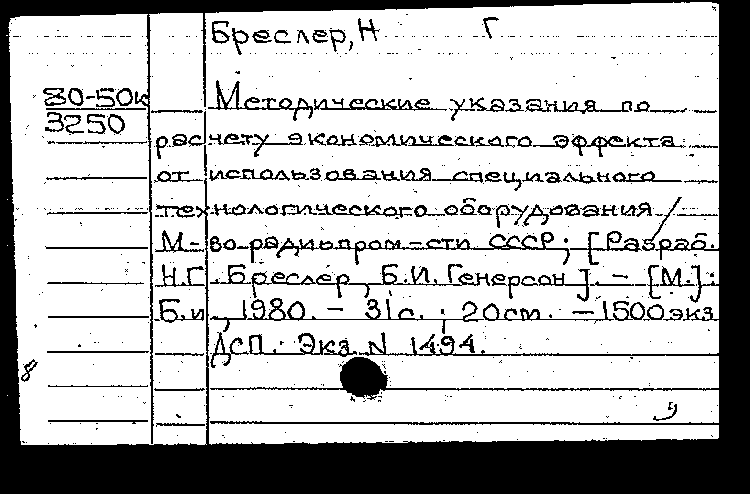 Бреслер, Н Г
80-50к
3250
Методические указания по
расчету экономического эффекта
от использования специального
технологического оборудования /
М-во радиопром-сти СССР; [Разраб.
Н.Г. Бреслер, Б.И. Генерсон]. - [М.]:
Б.и, 1980. - 31с. ; 20см. - 1500экз
ДСП. Экз N 1494.